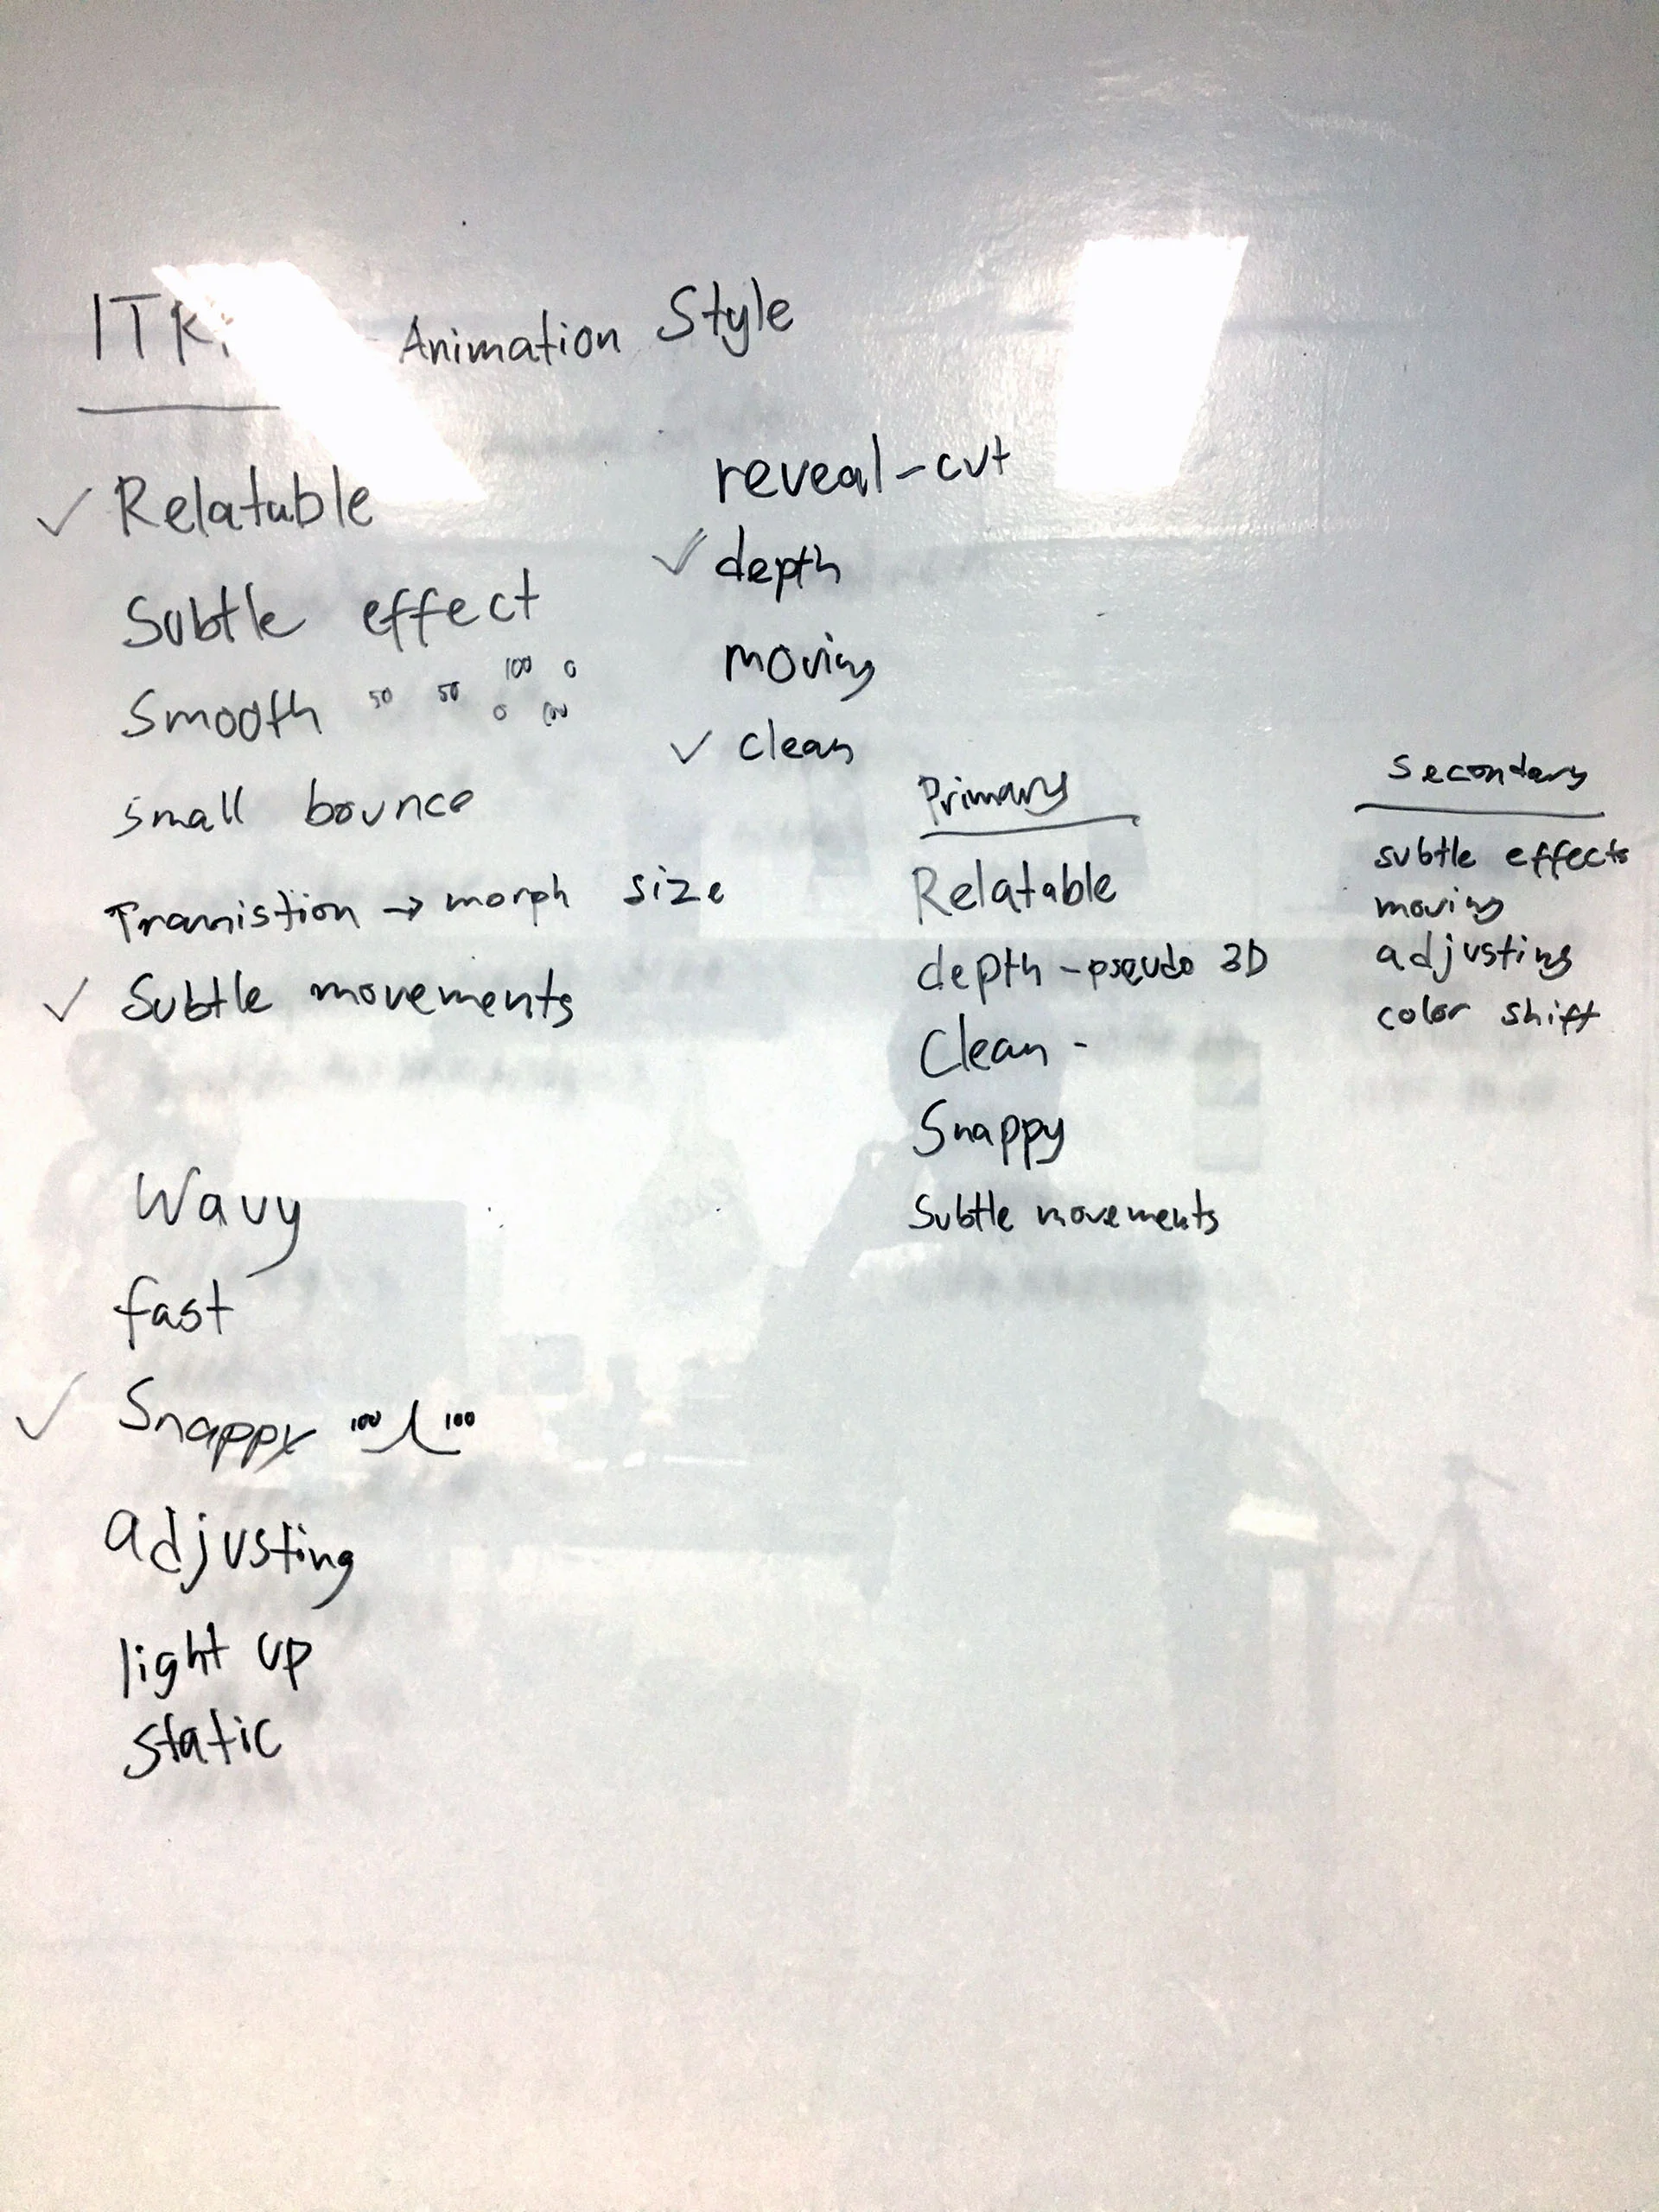 Animation Style
✓ Relatable
Subtle effect
Smooth 50 50 100 0
0 100
small bounce
Tramistion → morph size
✓ Subtle movements
Wavy
fast
✓ Snappy 100 100
adjusting
light up
static
reveal-cut
✓ depth
moving
✓ clean
Primary
Relatable
depth - pseudo 3D
Clean -
Snappy
Subtle movements
Secondary
subtle effects
moving
adjusting
color shift